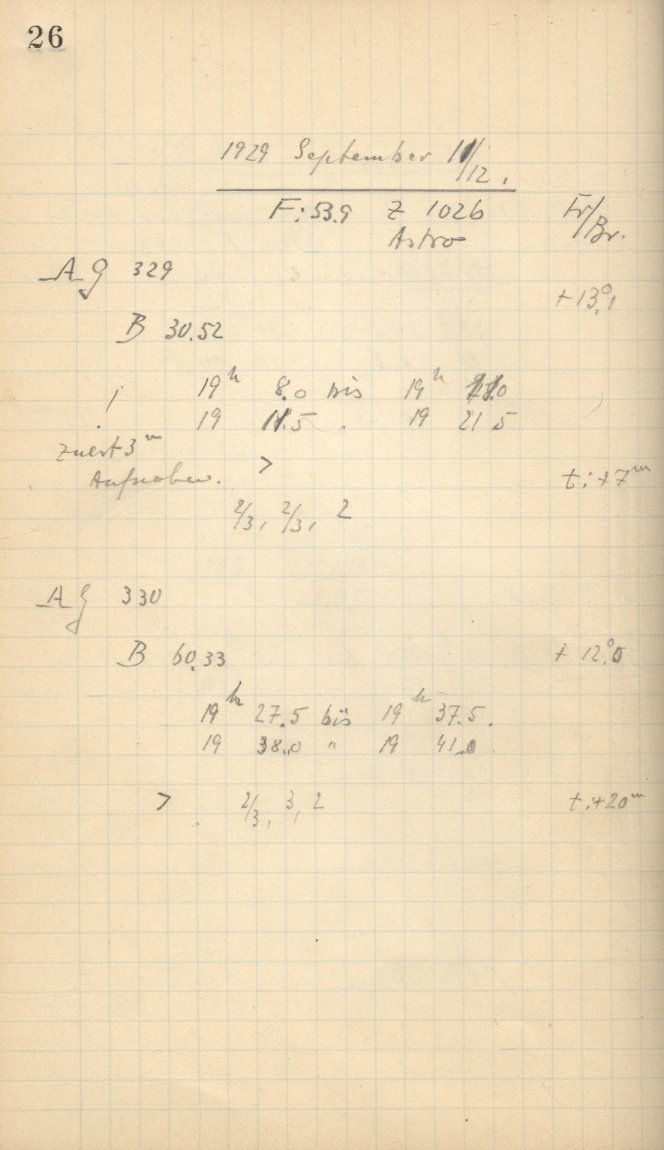 26
1929 September 11/12.
F: 53.9 Z 1026 Fr/Br.
Astro
AG 329
+13°,1
B 30.52
19h 8.0 bis 19h 11.0
! 19 11.5 " 19 21 5
zuerst 3m
Aufnahme. >
t: +7m
2/3, 2/3, 2
AG 330
B 60.33 + 12°,0
19h 27.5 bis 19h 37.5.
19 38.0 " 19 41.0
> 2/3, 3, 2 t: +20m